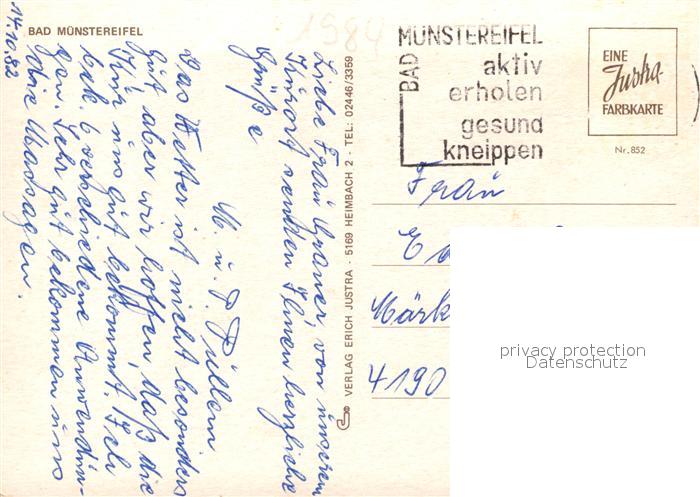 BAD MÜNSTEREIFEL
14.10.82
1984
Liebe Frau Graner, von unserem
Kurort senden Ihnen herzliche
Grüße
M. u. P. Püllem
Das Wetter ist nicht besonders
gut aber wir hoffen, daß die
Kur uns gut bekommt. Ich
bek. 6 verschiedene Anwendun-
gen. Sehr gut bekommen uns
die Massagen.
VERLAG ERICH JUSTRA · 5169 HEIMBACH 2 - TEL.: 02446/3359
BAD MÜNSTEREIFEL
aktiv
erholen
gesund
kneippen
EINE
Justra
FARBKARTE
Nr. 852
Frau
Märk
4190
privacy protection
Datenschutz